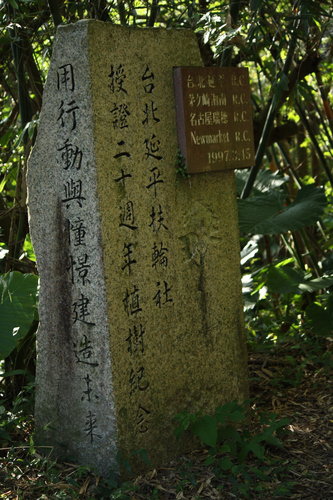 台北延平扶輪社
授證二十週年植樹紀念
用行動與憧憬建造未來
台北延平 R.C.
茅ケ崎湘南 R.C.
名古屋瑞穂 R.C.
Newmarket R.C.
1997.3.15